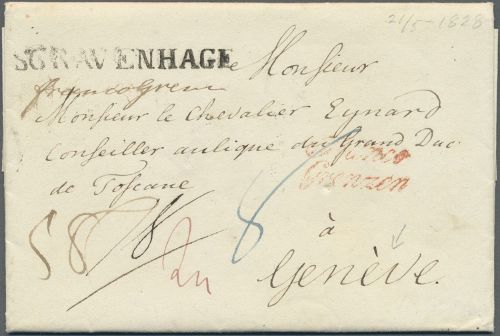 21/5-1828
SGRAVENHAGE
Monsieur
franco Gren
Monsieur le Chevalier Eynard
Conseiller aulique du Grand Duc
de Toscane
Franco
Grenzen
58
18
8
à
Genève.